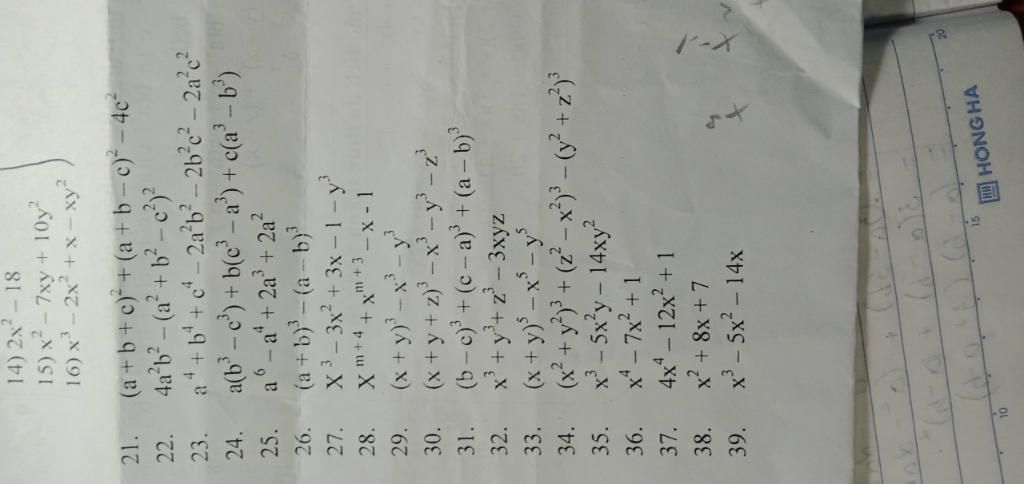 14) 2x² – 18
15) x² – 7xy + 10y²
16) x³ – 2x² + x – xy²
21. (a + b + c)² + (a + b – c)² – 4c²
22. 4a²b² – (a² + b² – c²)²
23. a⁴ + b⁴ + c⁴ – 2a²b² – 2b²c² – 2a²c²
24. a(b³ – c³) + b(c³ – a³) + c(a³ – b³)
25. a⁶ – a⁴ + 2a³ + 2a²
26. (a + b)³ – (a – b)³
27. X³ – 3x² + 3x – 1 – y³
28. X ᵐ⁺⁴ + xᵐ⁺³ – x - 1
29. (x + y)³ – x³ – y³
30. (x + y + z)³ – x³ – y³ – z³
31. (b – c)³ + (c – a)³ + (a – b)³
32. x³ + y³ + z³ – 3xyz
33. (x + y)⁵ – x⁵ – y⁵
34. (x² + y²)³ + (z² – x²)³ – (y² + z²)³
35. x³ – 5x²y – 14xy²
36. x⁴ – 7x² + 1
37. 4x⁴ – 12x² + 1
38. x² + 8x + 7
39. x³ – 5x² – 14x
HONG HA
10
15
20